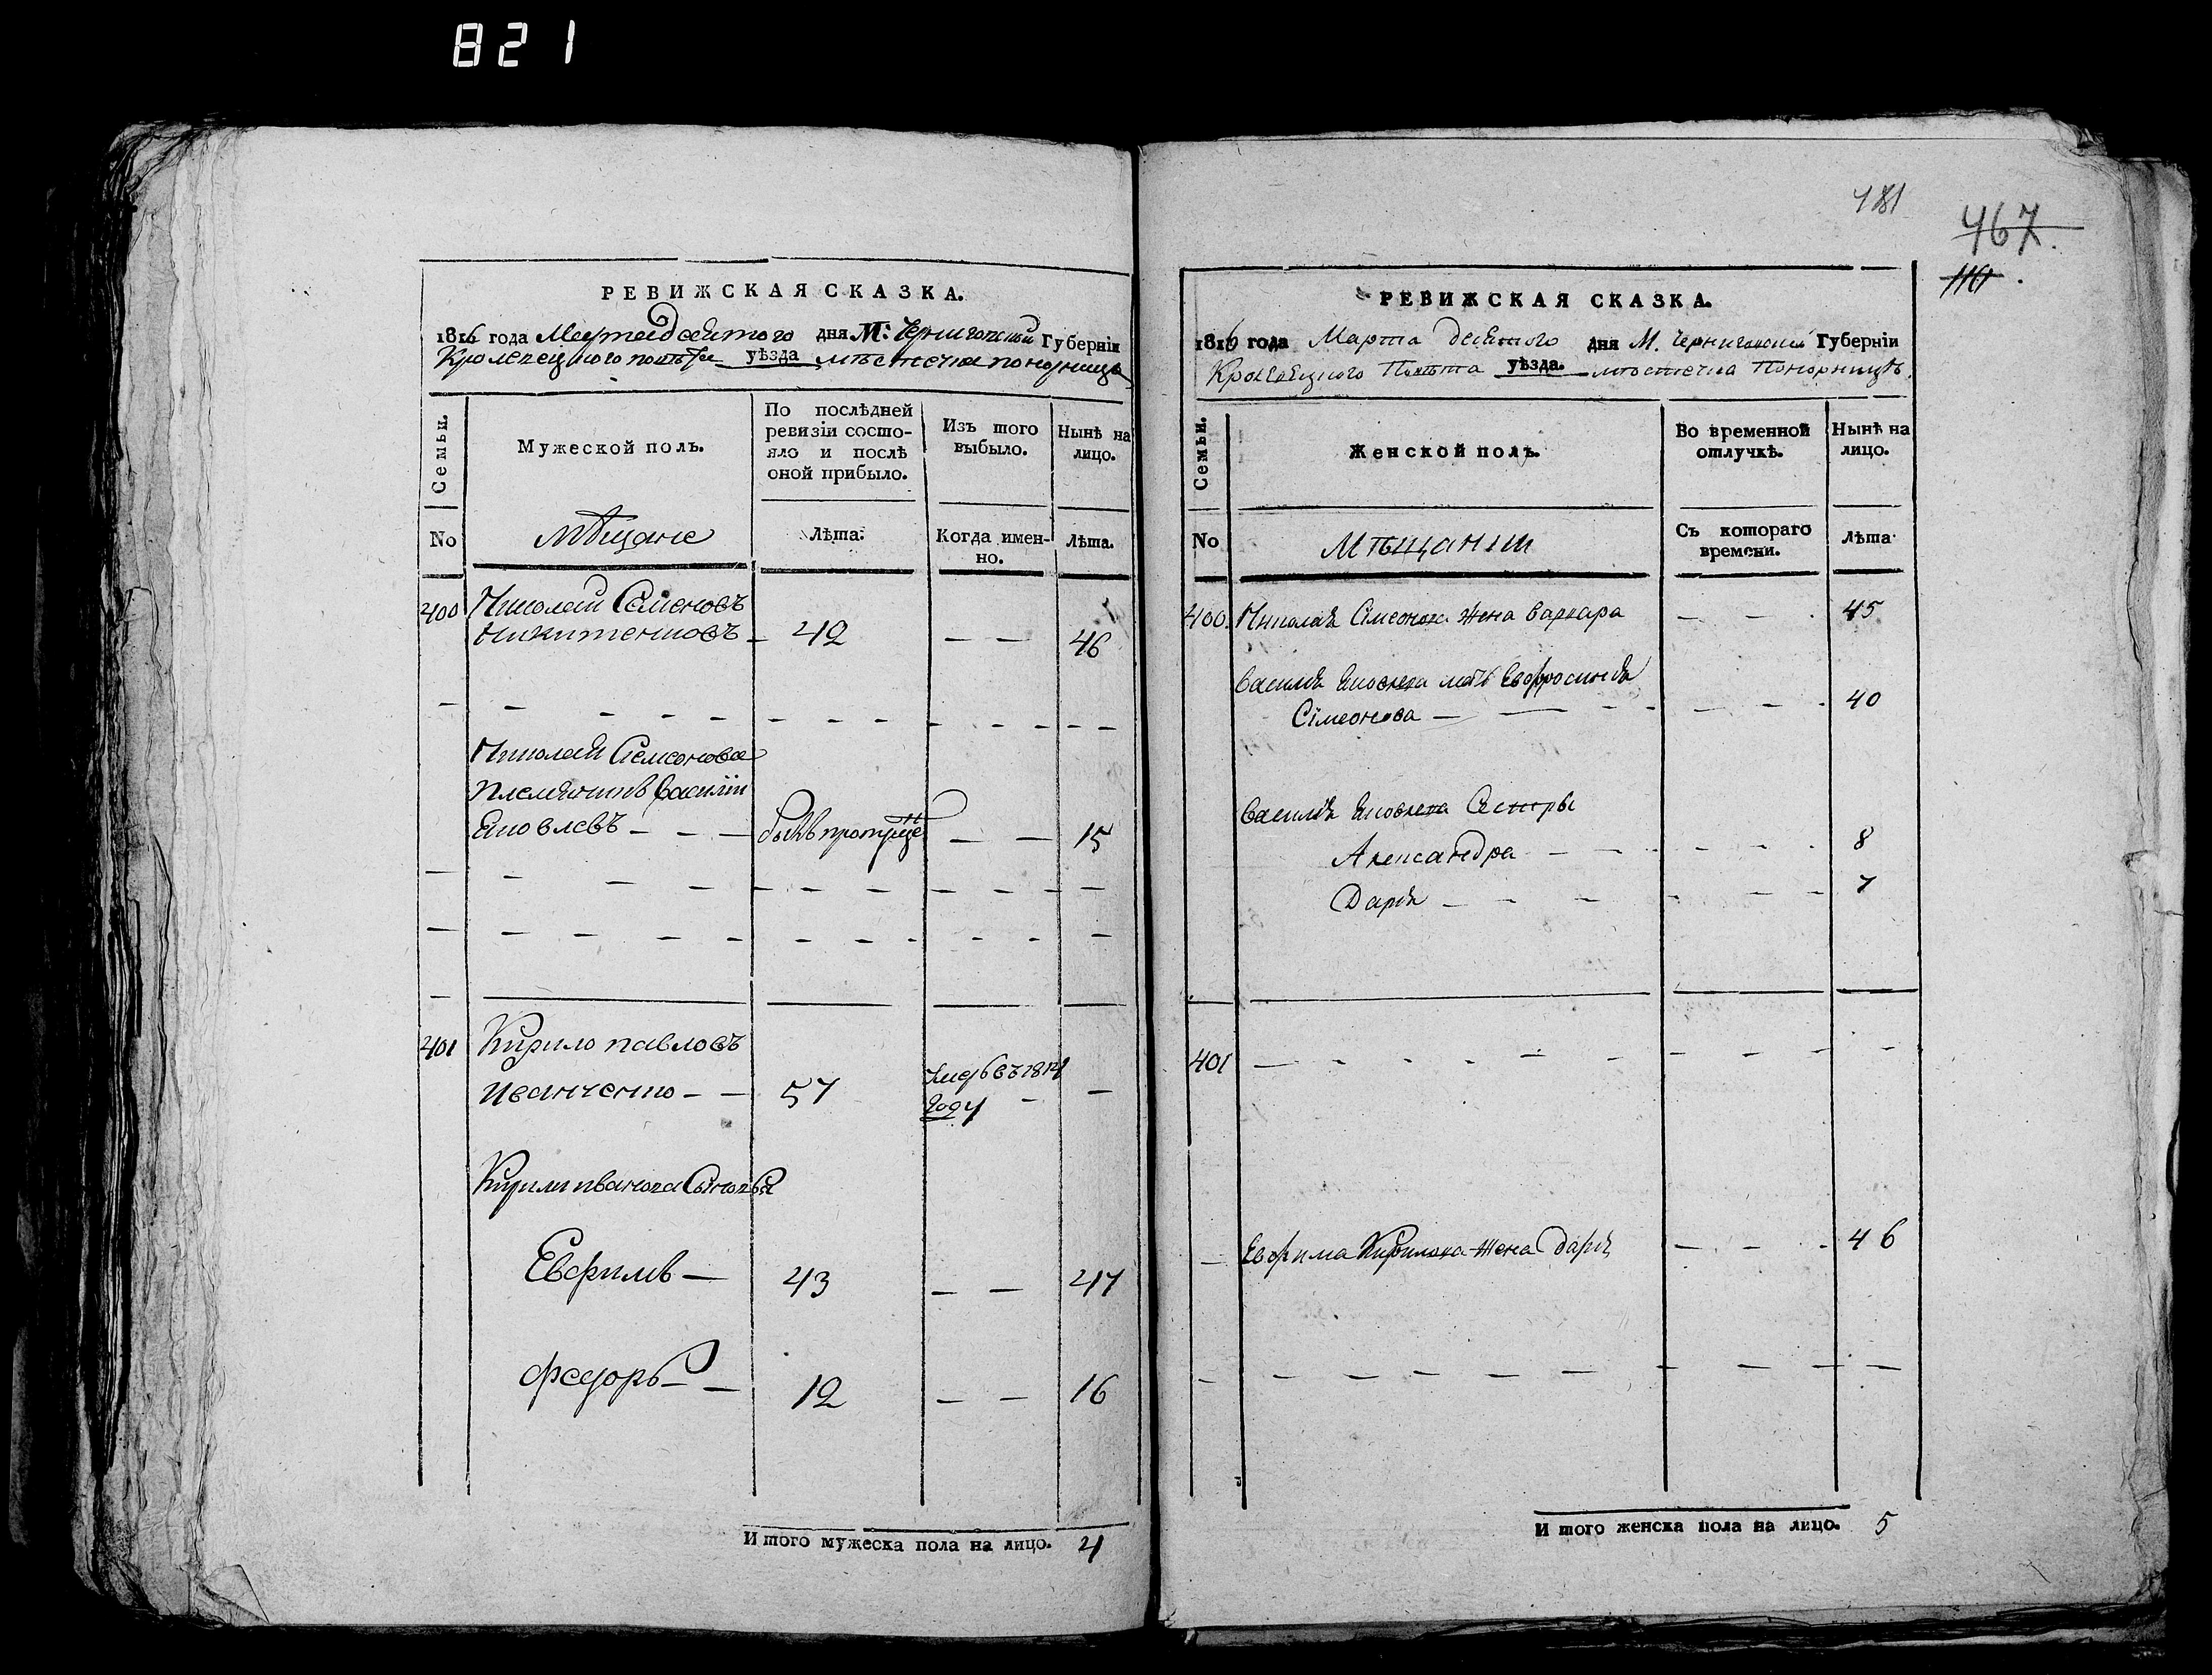 821
РЕВИЖСКАЯ СКАЗКА.
1816 года Марта десятого дня М: Черниговской Губерніи
Кролевецкого повѣта уѣзда мѣстечка понорницы
Семьи.
Мужеской полъ.
По послѣдней ревизіи состо-
яло и послѣ оной прибыло.
Изъ того выбыло.
Нынѣ на лицо.
No
мѣщане
Лѣта:
Когда имен-
но.
Лѣта.
400 Николай Семеновъ
никитенковъ — 42 — — 46
Николая Семенова
племянникъ Василій
Яковлевъ — — — 15
401 Кирило павловъ
иванченко — — 57 — —
годУ
Кирила иванова Сыновья
Евфимъ — 43 — — 47
федоръ — — 12 — — 16
И того мужеска пола на лицо. 4
481
467.
110
РЕВИЖСКАЯ СКАЗКА.
1816 года Марта десятого дня М. Черниговской Губерніи
Кролевецкого Повѣта уѣзда. мѣстечка Понорницѣ.
Семьи.
Женской полъ.
Во временной отлучкѣ.
Нынѣ на лицо.
No
Мѣщанки
Съ котораго времени.
Лѣта
400. Николая Сімеонова Жена Варвара — — 45
Василія Яковлева мать Евфросинія
Сімеонова — — — 40
Василія Яковлева Сестры
Александра — — — 8
Дарія — — — 7
401 — — —
— Евфима Кирилова Жена Дарія — — 46
И того женска пола на лицо. 5